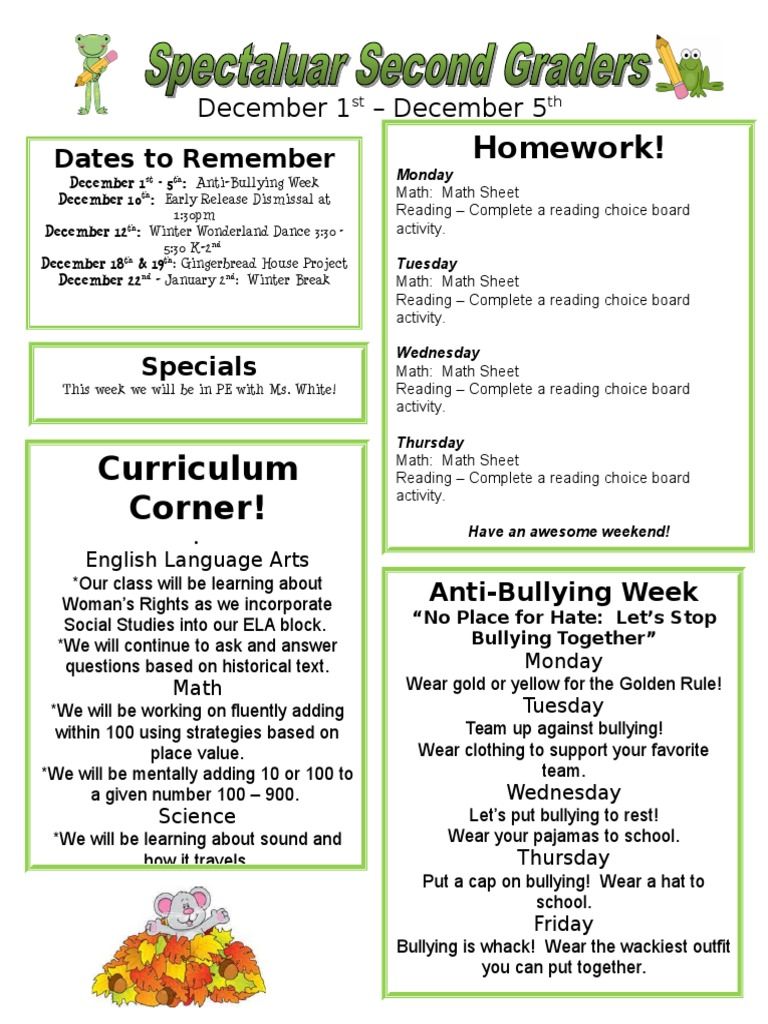 Spectaluar Second Graders
December 1st – December 5th
Dates to Remember
December 1st - 5th: Anti-Bullying Week
December 10th: Early Release Dismissal at
1:30pm
December 12th: Winter Wonderland Dance 3:30 -
5:30 K-2nd
December 18th & 19th: Gingerbread House Project
December 22nd - January 2nd: Winter Break
Specials
This week we will be in PE with Ms. White!
Curriculum
Corner!
.
English Language Arts
*Our class will be learning about
Woman's Rights as we incorporate
Social Studies into our ELA block.
*We will continue to ask and answer
questions based on historical text.
Math
*We will be working on fluently adding
within 100 using strategies based on
place value.
*We will be mentally adding 10 or 100 to
a given number 100 – 900.
Science
*We will be learning about sound and
how it travels
Homework!
Monday
Math: Math Sheet
Reading – Complete a reading choice board
activity.
Tuesday
Math: Math Sheet
Reading – Complete a reading choice board
activity.
Wednesday
Math: Math Sheet
Reading – Complete a reading choice board
activity.
Thursday
Math: Math Sheet
Reading – Complete a reading choice board
activity.
Have an awesome weekend!
Anti-Bullying Week
“No Place for Hate: Let’s Stop
Bullying Together”
Monday
Wear gold or yellow for the Golden Rule!
Tuesday
Team up against bullying!
Wear clothing to support your favorite
team.
Wednesday
Let’s put bullying to rest!
Wear your pajamas to school.
Thursday
Put a cap on bullying! Wear a hat to
school.
Friday
Bullying is whack! Wear the wackiest outfit
you can put together.